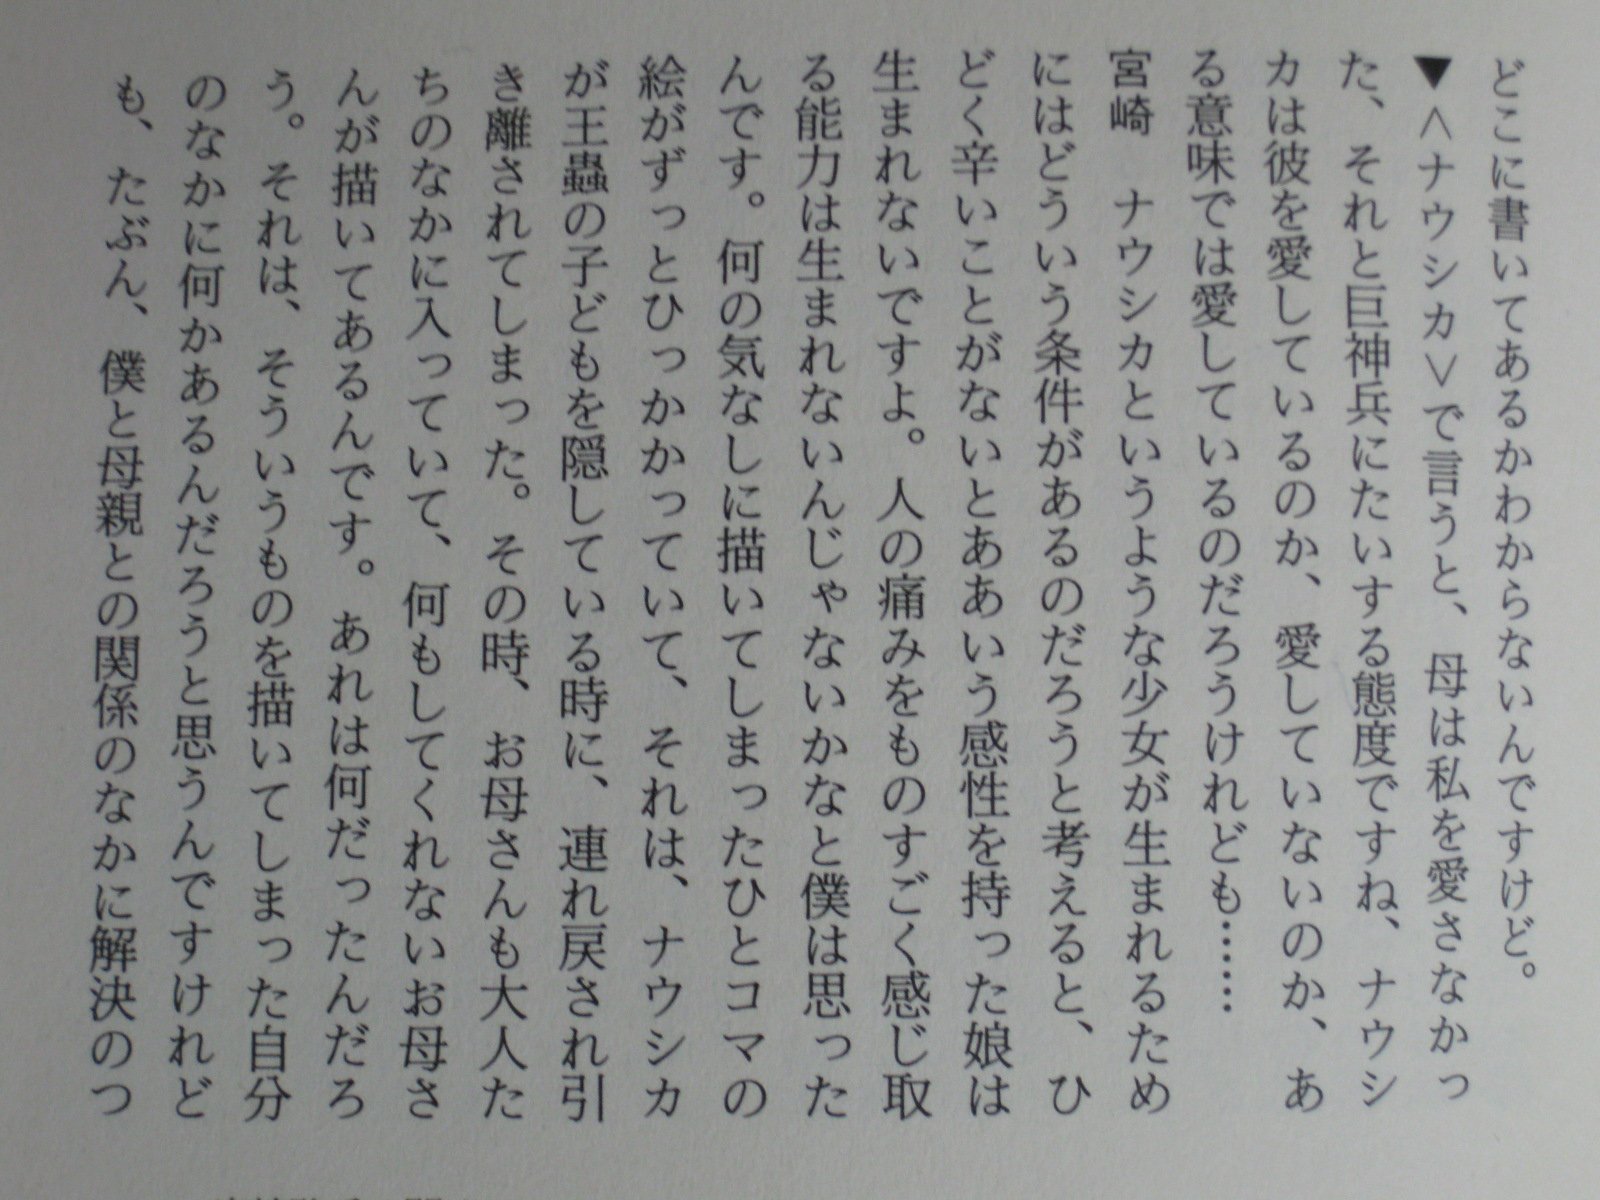 どこに書いてあるかわからないんですけど。
▼＜ナウシカ＞で言うと、母は私を愛さなかっ
た、それと巨神兵にたいする態度ですね、ナウシ
カは彼を愛しているのか、愛していないのか、あ
る意味では愛しているのだろうけれども……
宮崎　ナウシカというような少女が生まれるため
にはどういう条件があるのだろうと考えると、ひ
どく辛いことがないとああいう感性を持った娘は
生まれないですよ。人の痛みをものすごく感じ取
る能力は生まれないんじゃないかなと僕は思った
んです。何の気なしに描いてしまったひとコマの
絵がずっとひっかかっていて、それは、ナウシカ
が王蟲の子どもを隠している時に、連れ戻され引
き離されてしまった。その時、お母さんも大人た
ちのなかに入っていて、何もしてくれないお母さ
んが描いてあるんです。あれは何だったんだろ
う。それは、そういうものを描いてしまった自分
のなかに何かあるんだろうと思うんですけれど
も、たぶん、僕と母親との関係のなかに解決のつ